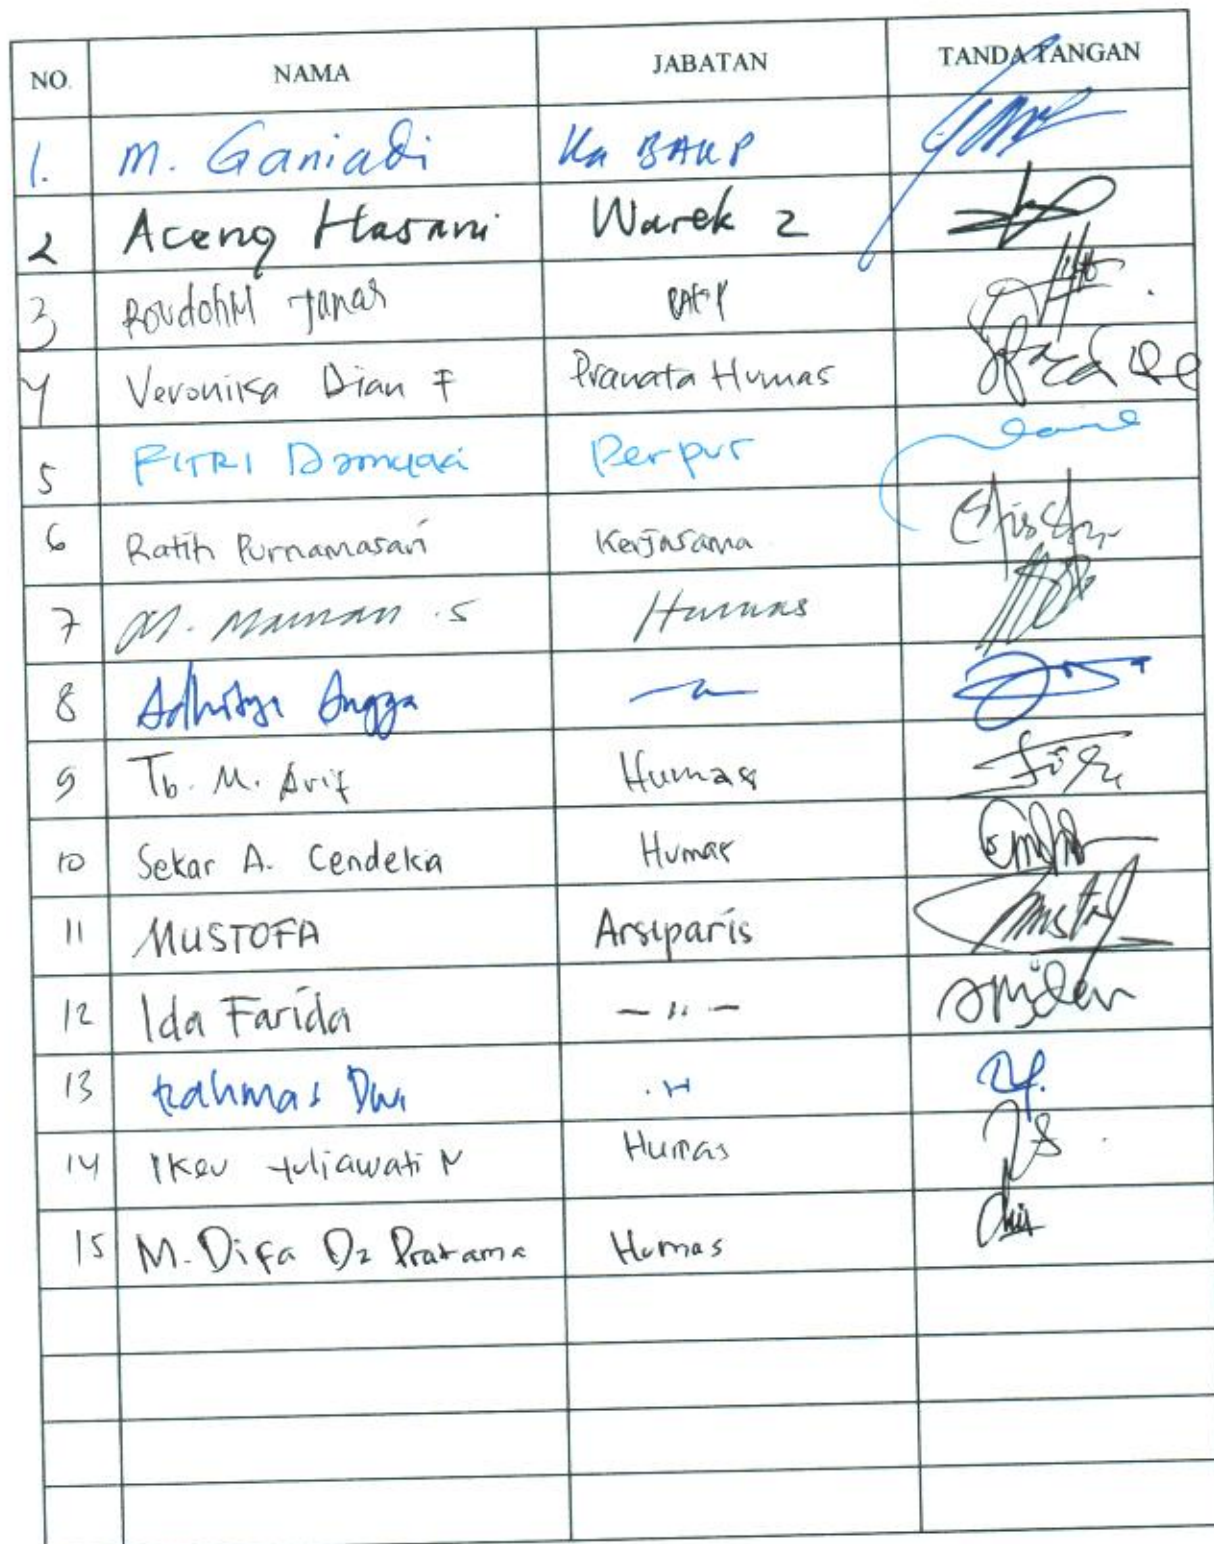 NO. NAMA JABATAN TANDA TANGAN
1. M. Ganiadi Ka BAKP
2 Aceng Hasani Warek 2
3 Janah
4 Veronika Dian F Pranata Humas
5 FITRI Perpus
6 Ratih Purnamasari Kerjasama
7 M. Maman .S Humas
8 Adhitya Angga
9 Tb. M. Arif Humas
10 Sekar A. Cendekia Humas
11 MUSTOFA Arsiparis
12 Ida Farida - 〃 -
13 Rahmas Dwi
14 Yuliawati N Humas
15 M. Difa Pratama Humas